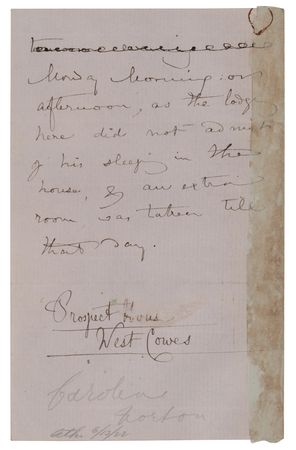 Monday Morning or
afternoon, as the lodge
here did not admit
of his sleeping in the
house, & an extra
room was taken till
that day.
Prospect House
West Cowes
Norton